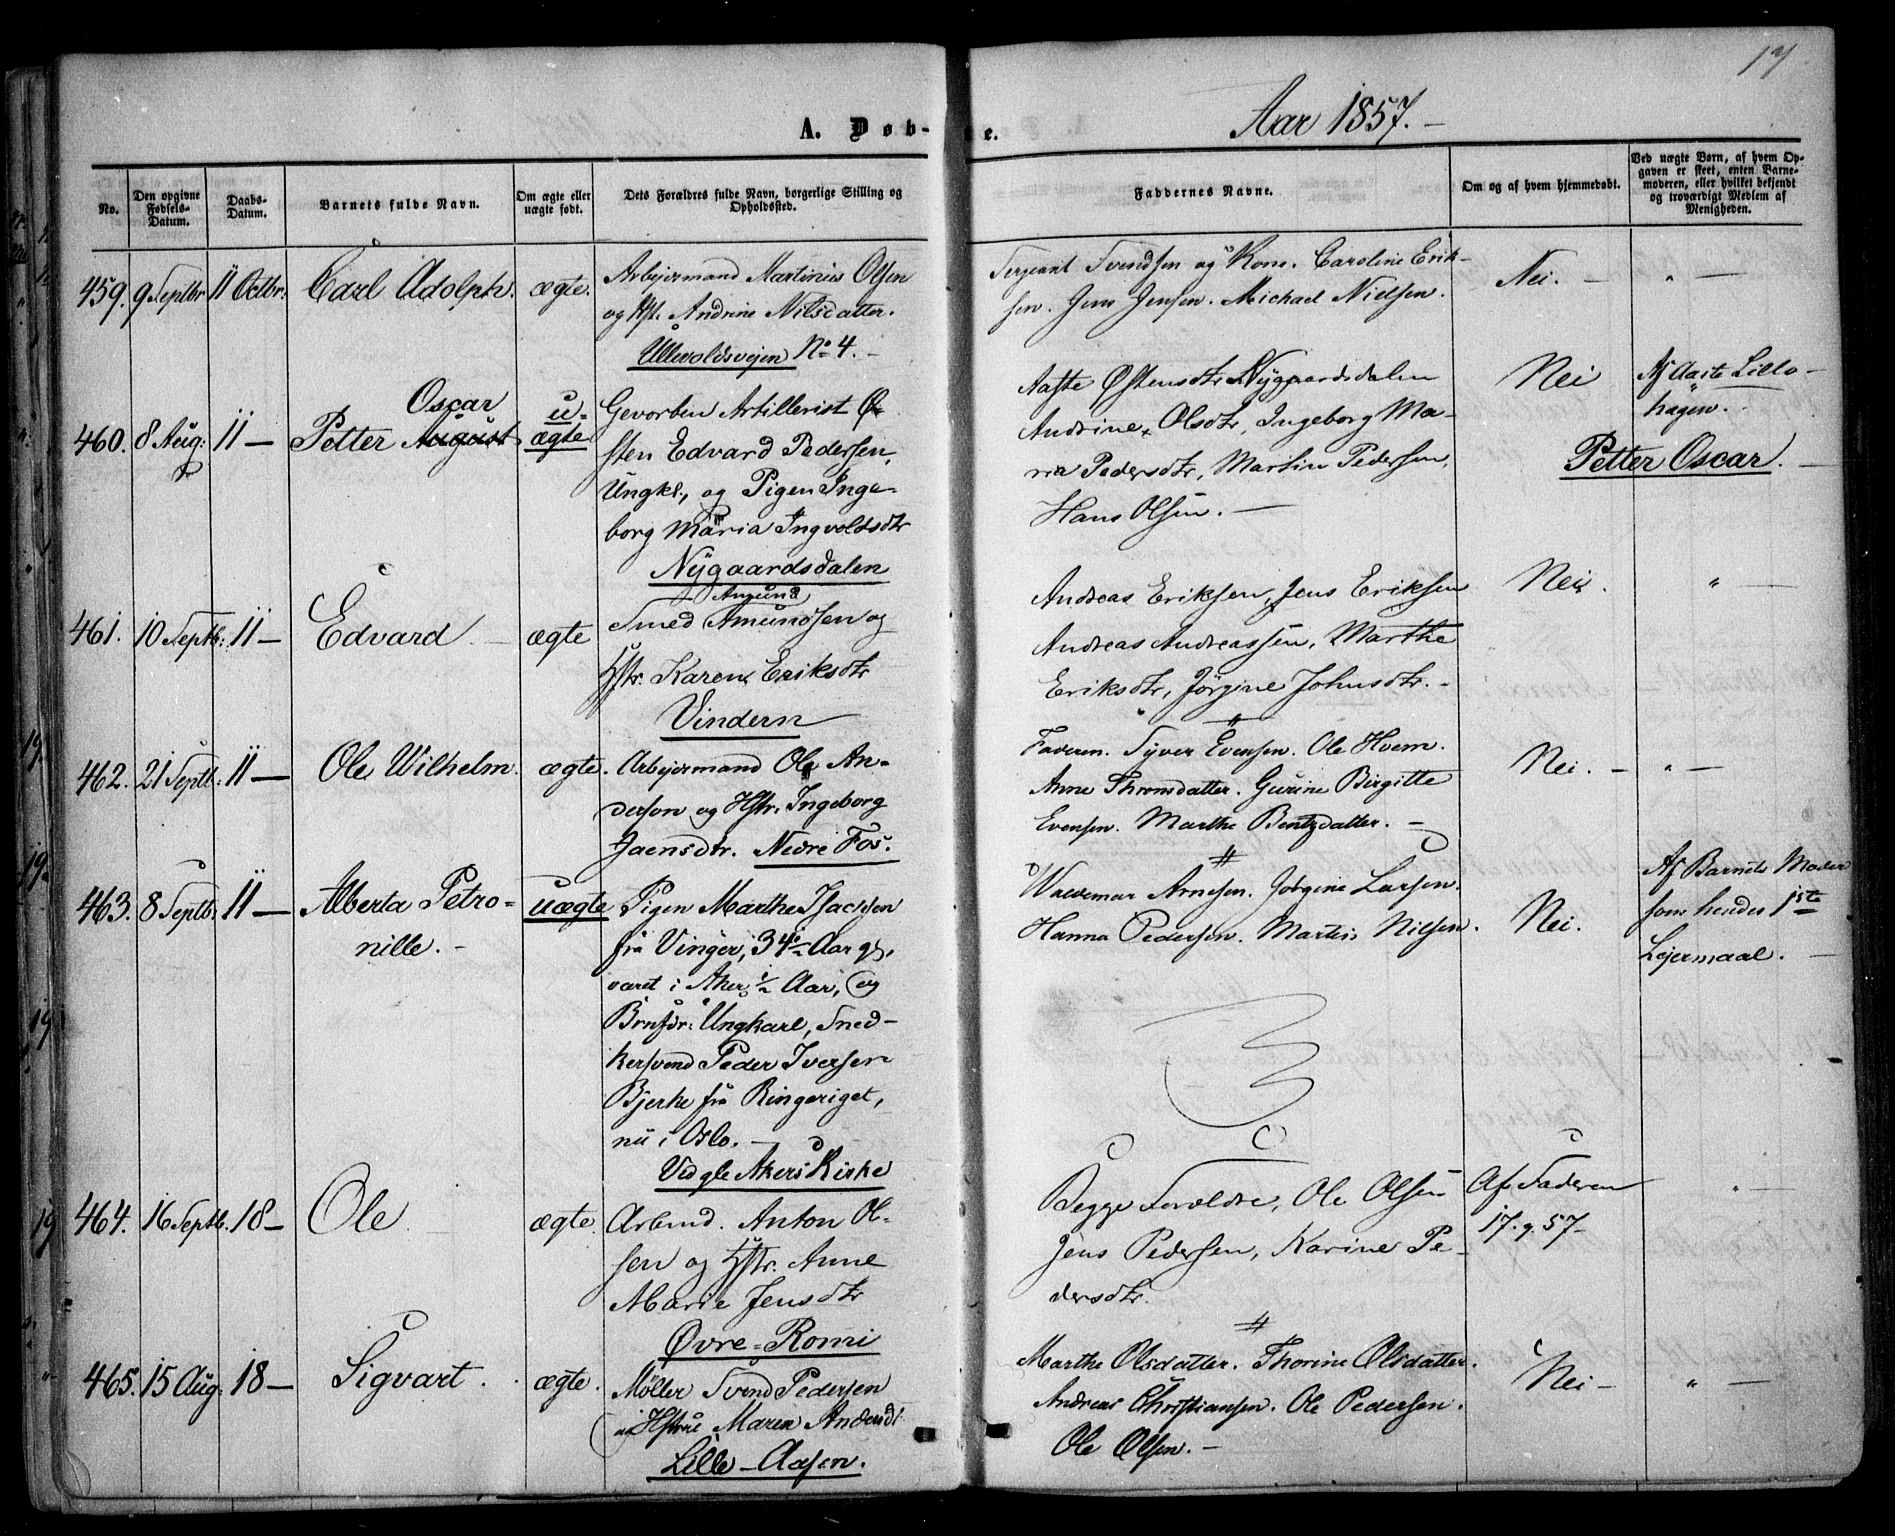 17
A. Døb-
e.
Aar 1857.
No.
Den opgivne Fødsels-Datum.
Daabs-Datum.
Barnets fulde Navn.
Om ægte eller uægte født.
Dets Forældres fulde Navn, borgerlige Stilling og Opholdssted.
Faddernes Navne.
Om og af hvem hjemmedøbt.
Ved uægte Børn, af hvem Opgaven er skeet, enten Barnemoderen, eller hvilket bekjendt og troværdigt Medlem af Menigheden.
459. 9 Septbr 11 Octbr: Carl Adolph. ægte.
Arbejdsmand Martinius Olsen
og Hst. Andrine Nilsdatter.
Ullevoldsvejen No 4. -
Sergeant Svendsen og Kone. Caroline Erik-
sen. Jens Jensen. Michael Nielsen.
Nei. - " -
460. 8 Aug: 11 - Petter August Oscar u-ægte
Gevorben Artillerist Ø-
sten Edvard Pedersen,
Ungkl., og Pigen Inge-
borg Maria Ingvoldsdtr
Nygaardsdalen
Aaste Østensdtr Nygaardsdalen
Andrine Olsdtr, Ingeborg Ma-
ria Pedersdtr, Martin Pedersen,
Hans Olsen. -
Nei
Af Aaste Lillo-
hagen.
Petter Oscar. -
461. 10 Septb: 11 - Edvard - ægte
Amund
Smed Amundsen og
Hstr. Karen Eriksdtr
Vindern
Andreas Eriksen, Jens Eriksen
Andreas Andreassen, Marthe
Eriksdtr, Jørgine Johnsdtr. -
Nei. " -
462. 21 Septb: 11 - Ole Wilhelm. ægte.
Arbejdsmand Ole An-
dersen og Hstr. Ingeborg
Jaensdtr. Nedre Fos.
Faderen. Syver Evensen. Ole Hvem.
Anne Thronsdatter. Gurine Birgitte
Evensen. Marthe Bentzdatter. -
Nei. - " -
463. 8 Septb: 11 - Alberta Petro-
nille. - uægte
Pigen Marthe Isachsen
fra Vinger, 34½ Aar gl,
været i Aker ½ Aar, og
Brnfdr: Ungkarl, Sned-
kersvend Peder Iversen
Bjerke fra Ringeriget,
nu i Oslo. -
Ved gle Akers Kirke
Waldemar Arnesen. Jørgine Larsen.
Hanna Pedersen. Martin Nilsen.
Nei.
Af Barnets Moder
som hendes 1ste
Lejermaal. -
464. 16 Septb. 18 - Ole ægte.
Arbmd. Anton Ol-
sen og Hstr. Anne
Marie Jensdtr
Øvre-Romi
Begge Forældre, Ole Olsen
Jens Pedersen, Karine Pe-
dersdtr.
Af Faderen
17. 9. 57 -
" -
465. 15 Aug: 18 - Sigvart. ægte.
Møller Svend Pedersen
og Hstrue Maren Andersdt
Lille-Aasen.
Marthe Olsdatter. Thorine Olsdatter.
Andreas Christiansen. Ole Pedersen.
Ole Olsen. -
Nei - " -